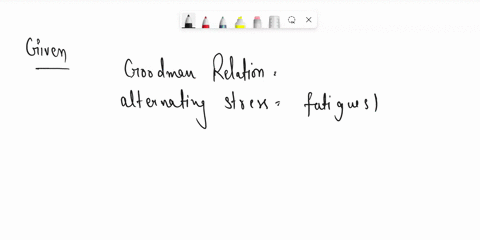 Given
Goodman Relation.
alternating stress = fatigues)